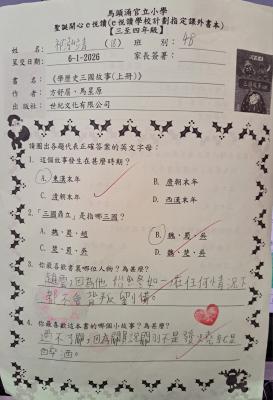 馬頭涌官立小學
聖誕開心e悅讀(e悅讀學校計劃指定課外書本)
【三至四年級】
姓 名： (8) 班 別： 4B
呈交日期： 6-1-2026 家長簽署：
書 名： 《學歷史三國故事(上冊)》
作 者： 方舒眉、馬星原
出 版 社： 世紀文化有限公司
請圈出各題代表正確答案的英文字母：
1. 這個故事發生在甚麼時期？
A. 東漢末年 B. 唐朝末年
C. 清朝末年 D. 西漢末年
2. 「三國鼎立」是指哪三國？
A. 魏、蜀、趙 B. 魏、蜀、吳
C. 楚、蜀、吳 D. 魏、楚、蜀
3. 你最喜歡書裏哪位人物？為甚麼？
趙雲,因為他 始終如一,在任何情況下
都不會背叛劉備。
4. 你最喜歡這本書的哪個小故事？為甚麼？